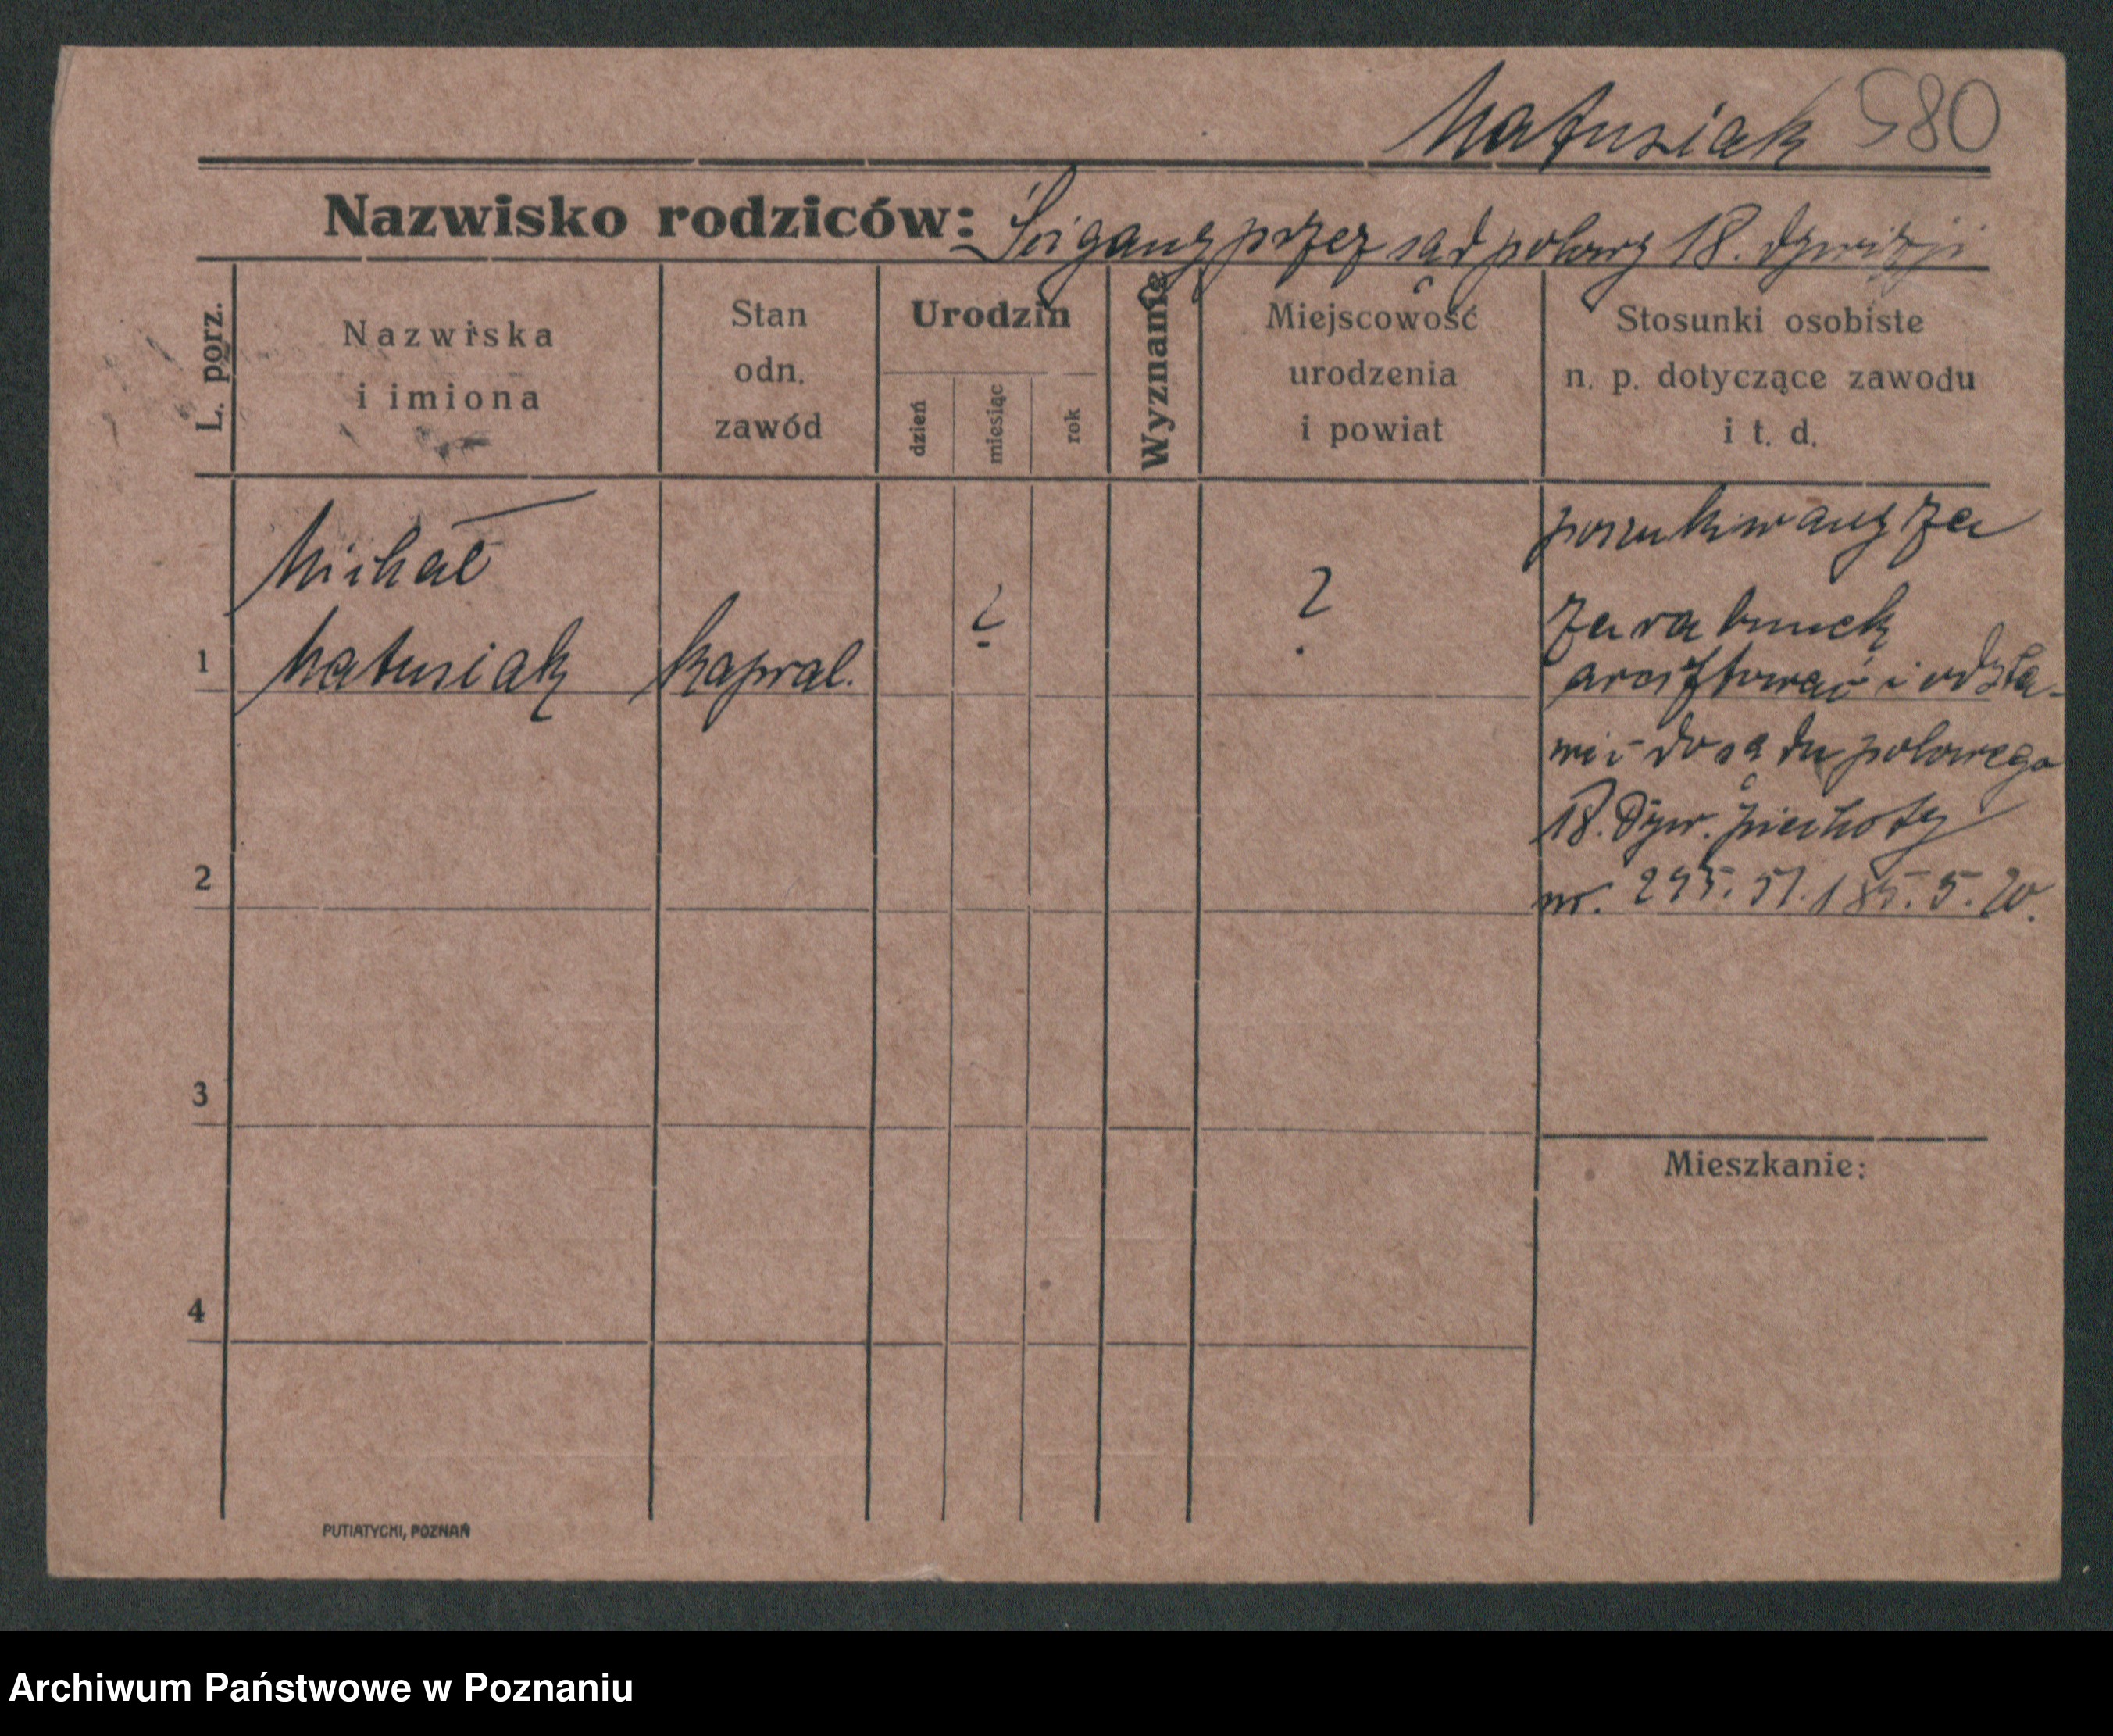 Matusiak 580
Nazwisko rodziców: Ścigany przez sąd polowy 18. dywizji
L. porz.
Nazwiska
i imiona
Stan
odn.
zawód
Urodzin
dzień
miesiąc
rok
Wyznanie
Miejscowość
urodzenia
i powiat
Stosunki osobiste
n. p. dotyczące zawodu
i t. d.
1
Michał
Matusiak
kapral.
?
?
poszukiwany za
za rabunek
aresztować i odsta-
wić do sądu polowego
18. Dyw. piechoty
nr.
2
3
4
Mieszkanie:
PUTIATYCKI, POZNAŃ
Archiwum Państwowe w Poznaniu